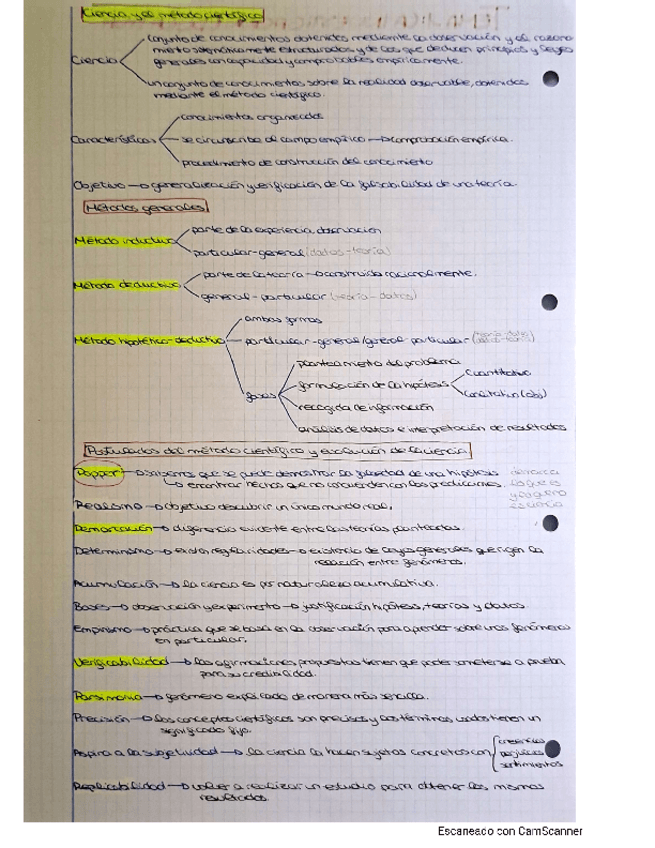 Ciencia y el método científico
conjunto de conocimientos obtenidos mediante la observación y el razona
miento sistemáticamente estructurados y de los que deducen principios y leyes
generales con capacidad y comprobables empíricamente.
Ciencia
un conjunto de conocimientos sobre la realidad observable, obtenidos
mediante el método científico.
conocimientos organizados
Características se circunscribe al campo empírico → comprobación empírica.
procedimiento de construcción del conocimiento
Objetivo → generalización y verificación de la falsabilidad de una teoría.
Métodos generales
parte de la experiencia, observación
Método inductivo
particular-general (datos-teoría)
parte de la teoría → construida racionalmente.
Método deductivo
general-particular (teoría-datos)
ambas formas
Método hipotético-deductivo particular-general/general-particular (teoría-datos
datos-teoría)
planteamiento del problema
formulación de la hipótesis Cuantitativo
Cualitativo (obj)
fases
recogida de información
análisis de datos e interpretación de resultados
Postulados del método científico y evolución de la ciencia
Popper → sabemos que se puede demostrar la falsedad de una hipótesis
→ encontrar hechos que no concuerden con las predicciones.
demarca
lo que es
y lo que no
es ciencia
Realismo → objetivo descubrir un único mundo real.
Demarcación → diferencia evidente entre las teorías planteadas.
Determinismo → existen regularidades → existencia de leyes generales que rigen la
relación entre fenómenos.
Acumulación → la ciencia es por naturaleza acumulativa.
Bases → observación y experimento → justificación hipótesis, teorías y datos.
Empirismo → práctica que se basa en la observación para aprender sobre unos fenómenos
en particular.
Verificabilidad → las afirmaciones propuestas tienen que poder someterse a prueba
para su credibilidad.
Parsimonia → fenómeno explicado de manera más sencilla.
Precisión → los conceptos científicos son precisos y los términos usados tienen un
significado fijo.
Aspira a la subjetividad → la ciencia la hacen sujetos concretos con creencias
prejuicios
sentimientos
Replicabilidad → volver a realizar un estudio para obtener los mismos
resultados.
Escaneado con CamScanner